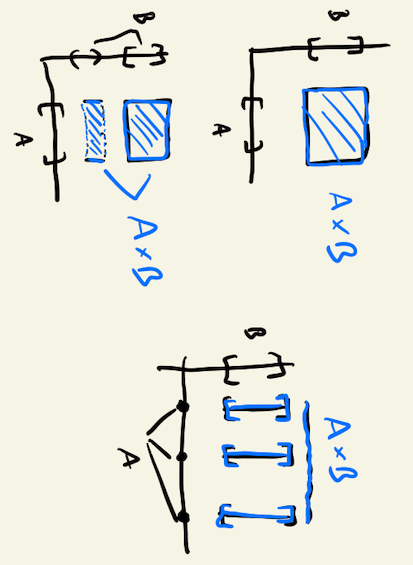 B
A
A×B
B
A
A×B
B
A
A×B